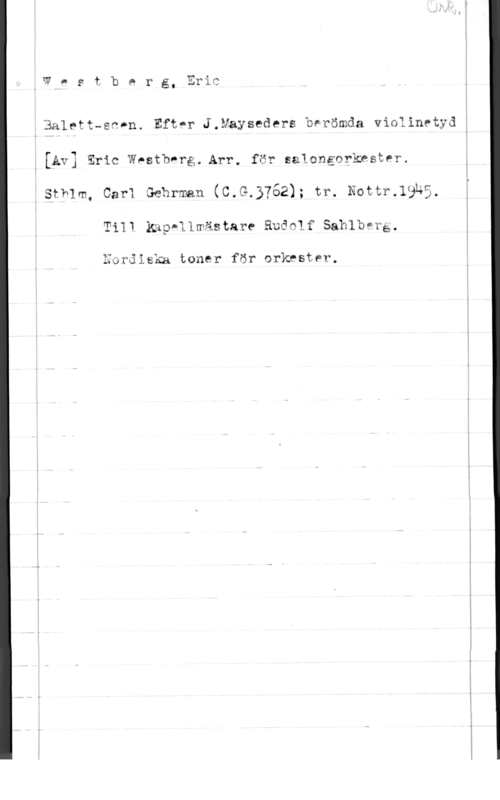 Ork.
W e s t b e r g, Eric
Balett-scen. Efter J.Mayseders berömda violinetyd
[Av] Eric Westberg. Arr. för salongorkester.
Sthlm, Carl Gehrman (C.G.3762); tr. Nottr.1945.
Till kapellmästare Rudolf Sahlberg.
Nordiska toner för orkester.